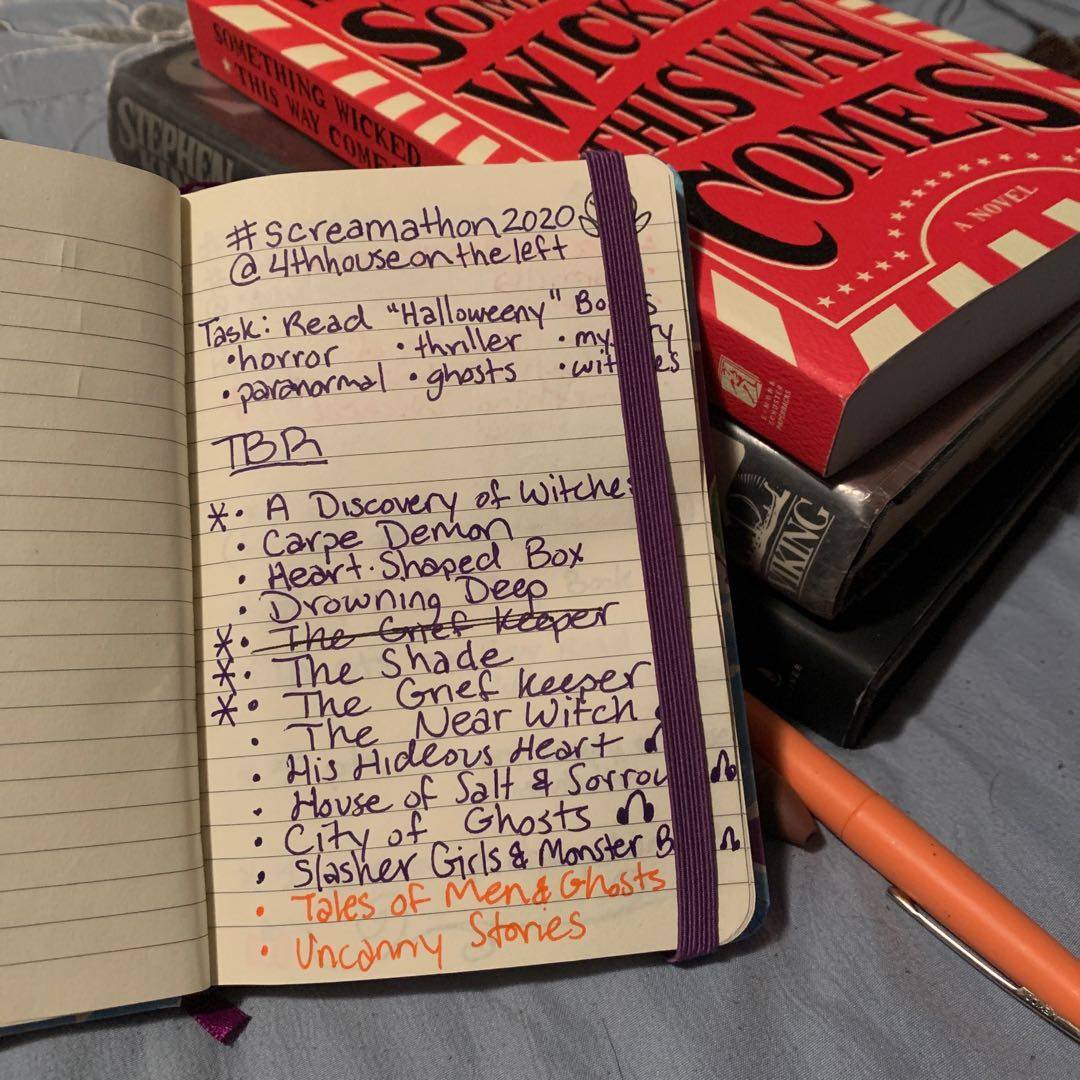 SOMETHING WICKED
THIS WAY COMES
WICKED
THIS WAY
COMES
A NOVEL
STEPHEN
VIKING
#screamathon2020
@4thhouseontheleft
Task: Read "Halloweeny"
• horror • thriller
• paranormal • ghosts
TBR
* • A Discovery of Witches
• Carpe Demon
• Heart-Shaped Box
• Drowning Deep
* • The Grief Keeper
* • The Shade
* • The Grief Keeper
• The Near Witch
• His Hideous Heart
• House of Salt & Sorrow
• City of Ghosts
• Slasher Girls & Monster B
• Tales of Men & Ghosts
• Uncanny Stories